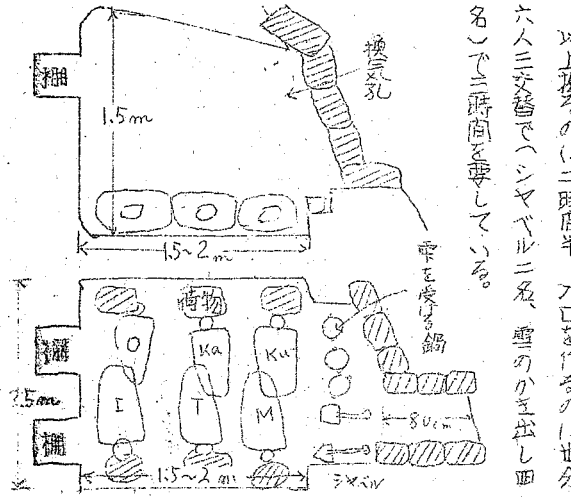 以上掘るのに二時間半、入口を作るのに世分
六人三交替で(シャベル二名、雪のかき出し四
名)で三時間を要している。
棚
1.5m
換気孔
1.5~2m
雫を受ける鍋
荷物
棚
棚
O
Ka
Ku
I
T
M
80cm
1.5~2m
シャベル